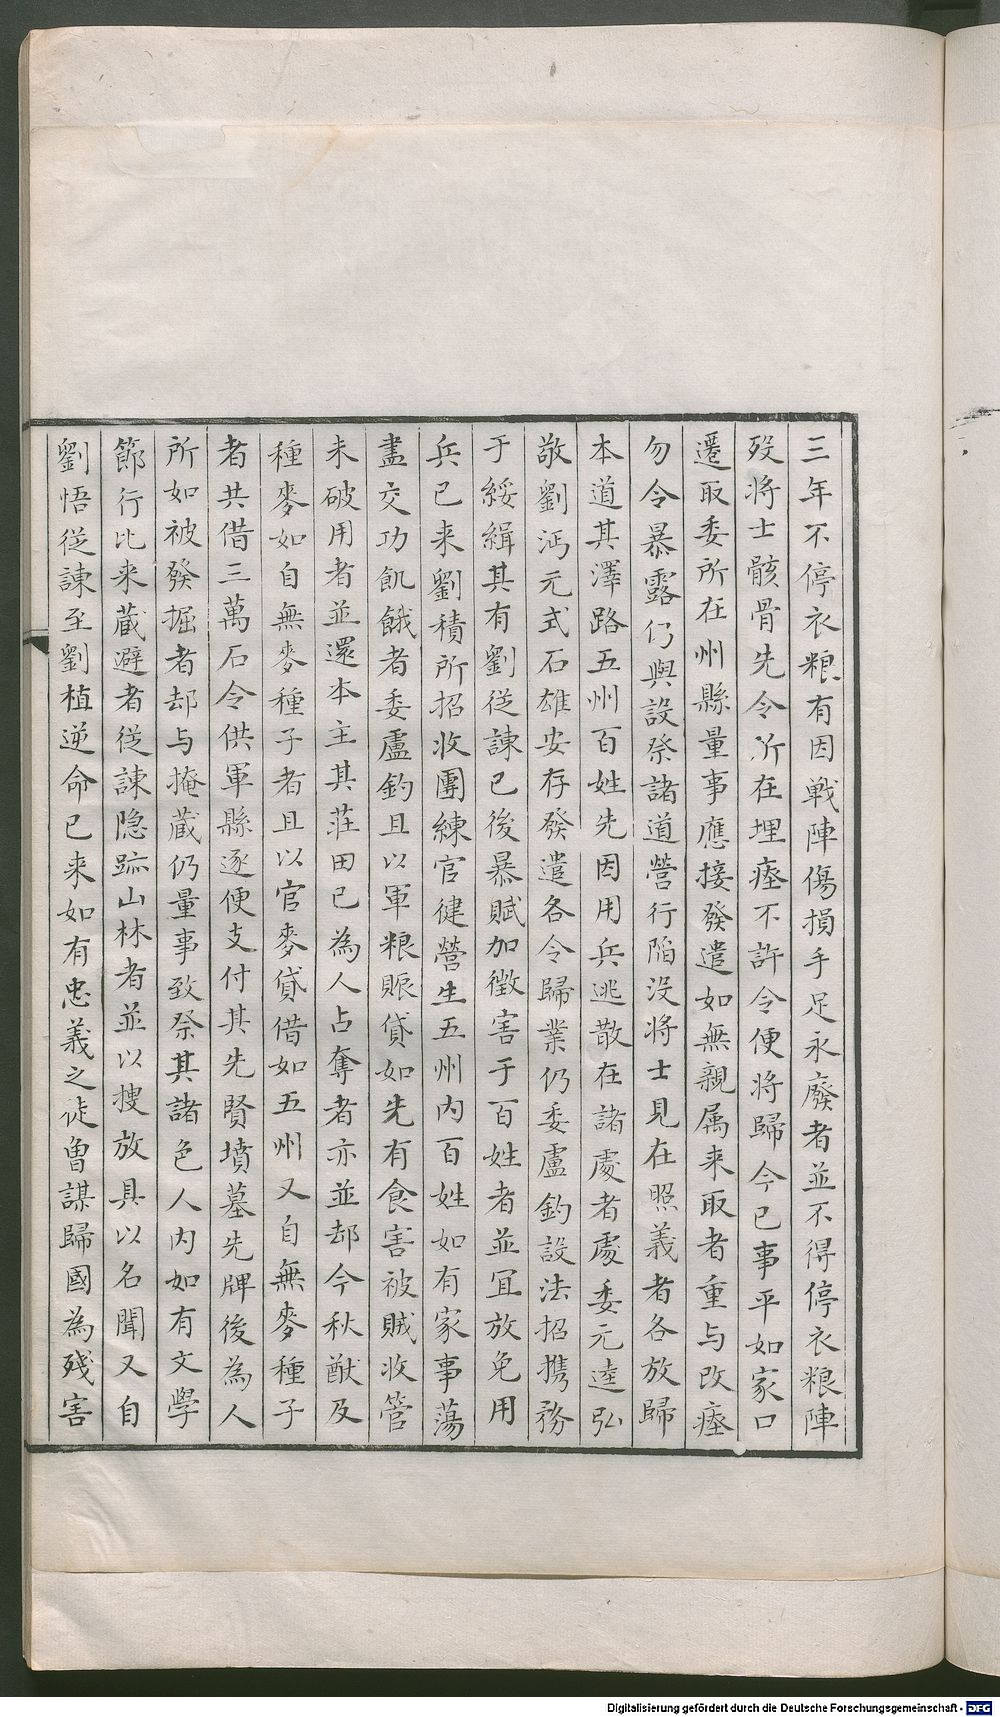 三年不停衣粮有因戰陣傷損手足永廢者並不得停衣粮陣
歿將士骸骨先令所在埋瘞不許令便將歸今已事平如家口
遷取委所在州縣量事應接發遣如無親属来取者重与改瘞
勿令暴露仍與設祭諸道營行陷没將士見在照義者各放歸
本道其澤路五州百姓先因用兵逃散在諸處者處委元逵弘
敬劉沔元式石雄安存發遣各令歸業仍委盧鈞設法招携務
于綏緝其有劉従諫已後暴賦加徵害于百姓者並冝放免用
兵已来劉積所招收團練官健營生五州内百姓如有家事蕩
盡交功飢餓者委盧鈞且以軍粮賑貸如先有食害被賊收管
未破用者並還本主其莊田已為人占奪者亦並却今秋猷及
種麥如自無麥種子者且以官麥貸借如五州又自無麥種子
者共借三萬石令供軍縣逐便支付其先賢墳墓先牌後為人
所如被發掘者却与掩蔵仍量事致祭其諸色人内如有文學
節行比来蔵避者従諫隐跡山林者並以搜放具以名聞又自
劉悟従諫至劉植逆命已来如有忠義之徒曽謀歸國為殘害
Digitalisierung gefördert durch die Deutsche Forschungsgemeinschaft - DFG